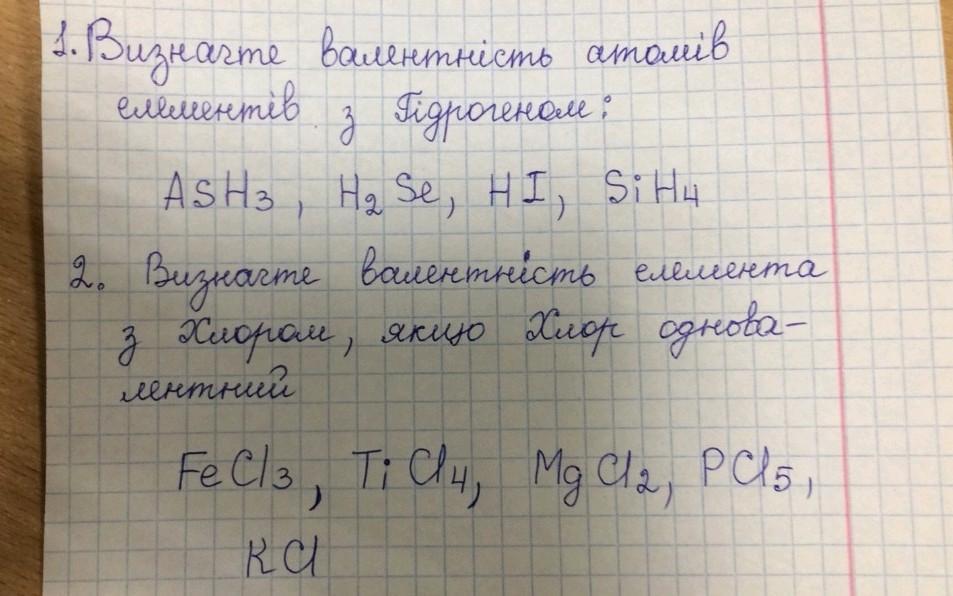 1. Визначте валентність атомів
елементів з Гідрогеном:
AsH3, H2Se, HI, SiH4
2. Визначте валентність елемента
з Хлором, якщо Хлор однова-
лентний
FeCl3, TiCl4, MgCl2, PCl5,
KCl